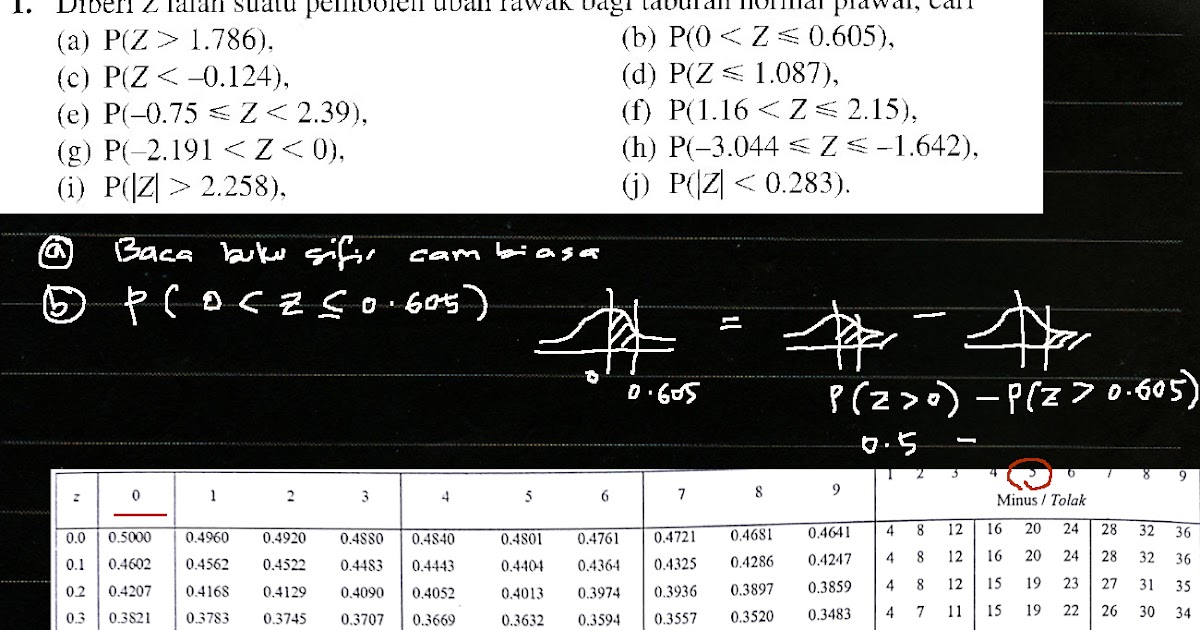 1. Diberi Z ialah suatu pemboleh ubah rawak bagi taburan normal piawai, cari
(a) P(Z > 1.786), (b) P(0 < Z ⩽ 0.605),
(c) P(Z < –0.124), (d) P(Z ⩽ 1.087),
(e) P(–0.75 ⩽ Z < 2.39), (f) P(1.16 < Z ⩽ 2.15),
(g) P(–2.191 < Z < 0), (h) P(–3.044 ⩽ Z ⩽ –1.642),
(i) P(|Z| > 2.258), (j) P(|Z| < 0.283).
(a) Baca buku sifir cam biasa
(b) P(0 < Z ≤ 0.605)
= –
0 0.605
P(Z > 0) – P(Z > 0.605)
0.5 –
z 0 1 2 3 4 5 6 7 8 9 1 2 3 4 5 6 7 8 9
Minus / Tolak
0.0 0.5000 0.4960 0.4920 0.4880 0.4840 0.4801 0.4761 0.4721 0.4681 0.4641 4 8 12 16 20 24 28 32 36
0.1 0.4602 0.4562 0.4522 0.4483 0.4443 0.4404 0.4364 0.4325 0.4286 0.4247 4 8 12 16 20 24 28 32 36
0.2 0.4207 0.4168 0.4129 0.4090 0.4052 0.4013 0.3974 0.3936 0.3897 0.3859 4 8 12 15 19 23 27 31 35
0.3 0.3821 0.3783 0.3745 0.3707 0.3669 0.3632 0.3594 0.3557 0.3520 0.3483 4 7 11 15 19 22 26 30 34